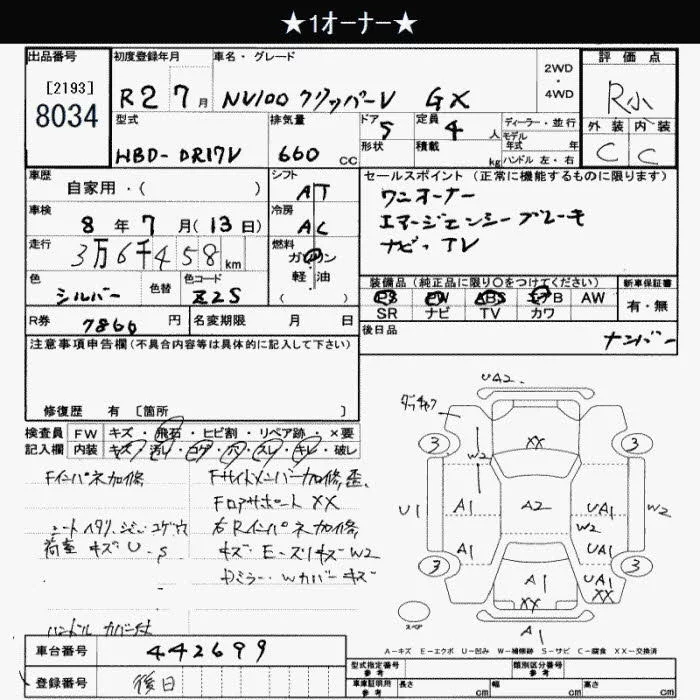 ★1オーナー★
出品番号
[2193]
8034
初度登録年月
R2 7月
車名・グレード
NV100 クリッパーV GX
2WD・4WD
評価点
R小
外装 内装
C C
型式
HBD-DR17V
排気量
660 CC
ドア
5
形状
定員
4 人
積載
kg
ディーラー・並行
モデル
年式 年
ハンドル 左・右
車歴
自家用・( )
シフト
AT
セールスポイント(正常に機能するものに限ります)
ワンオーナー
エマージェンシーブレーキ
ナビ、TV
車検
8年 7月(13日)
冷房
AC
走行
3万6千458km
燃料
ガソリン
軽油
( )
色
シルバー
色替
色コード
Z2S
装備品(純正品に限り○をつけてください)
PS PW ABS エアB AW
SR ナビ TV カワ
新車保証書
有・無
R券
7860円
名変期限 月 日
後日品
ナンバー
注意事項申告欄(不具合内容等は具体的に記入して下さい)
修復歴 有 〔箇所 〕
検査員 FW キズ・飛石・ヒビ割・リペア跡・×要
記入欄 内装 キズ・汚レ・コゲ・穴・スレ・キレ・破レ
Fインパネ加修
シートヘタリ、シミ、コゲ穴
荷室 キズ U.S
ハンドルカバー付
Fサイドメンバー加修、歪、
Fロアサポート XX
右Rインパネ加修、
キズ E-ズリキズ W2
ミラー、Wカバーキズ
UA2
ダッチャク
3
3
XX
W2
U1
A1
A2
UA1
W2
W2
A1
UA1
3
3
A1
UA1
XX
XX
スペア
A1
A-キズ E-エクボ U-凹み W-補修跡 S-サビ C-腐食 XX-交換済
車台番号
442699
登録番号
後日
型式指定番号
参考
類別区分番号
参考
車庫証明用
参考
長さ cm
幅 cm
高さ cm